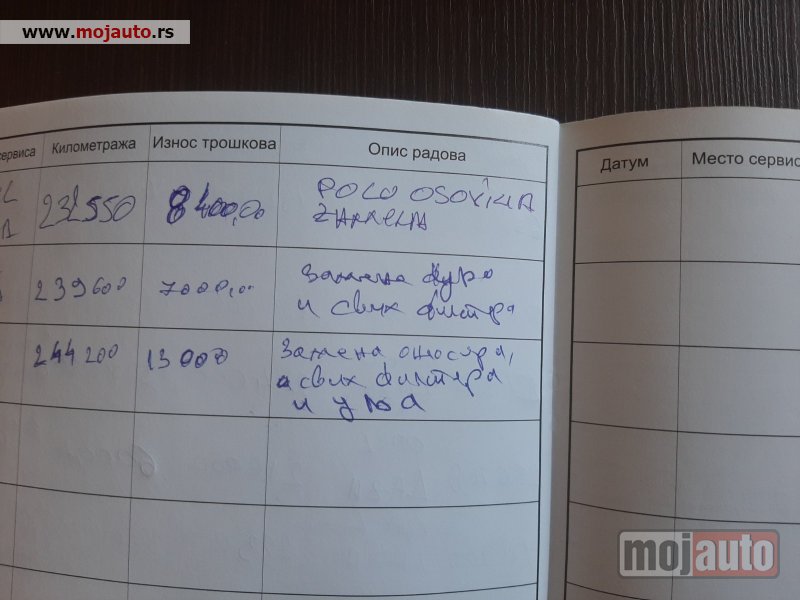 www.mojauto.rs
сервиса Километража Износ трошкова Опис радова
Датум Место сервис
232550 8400,00 POLU OSOVINA
ZAMENA
239600 7000,00 Замена
и свих филтера
244200 13000 Замена
и свих филтера
и уља
mojauto